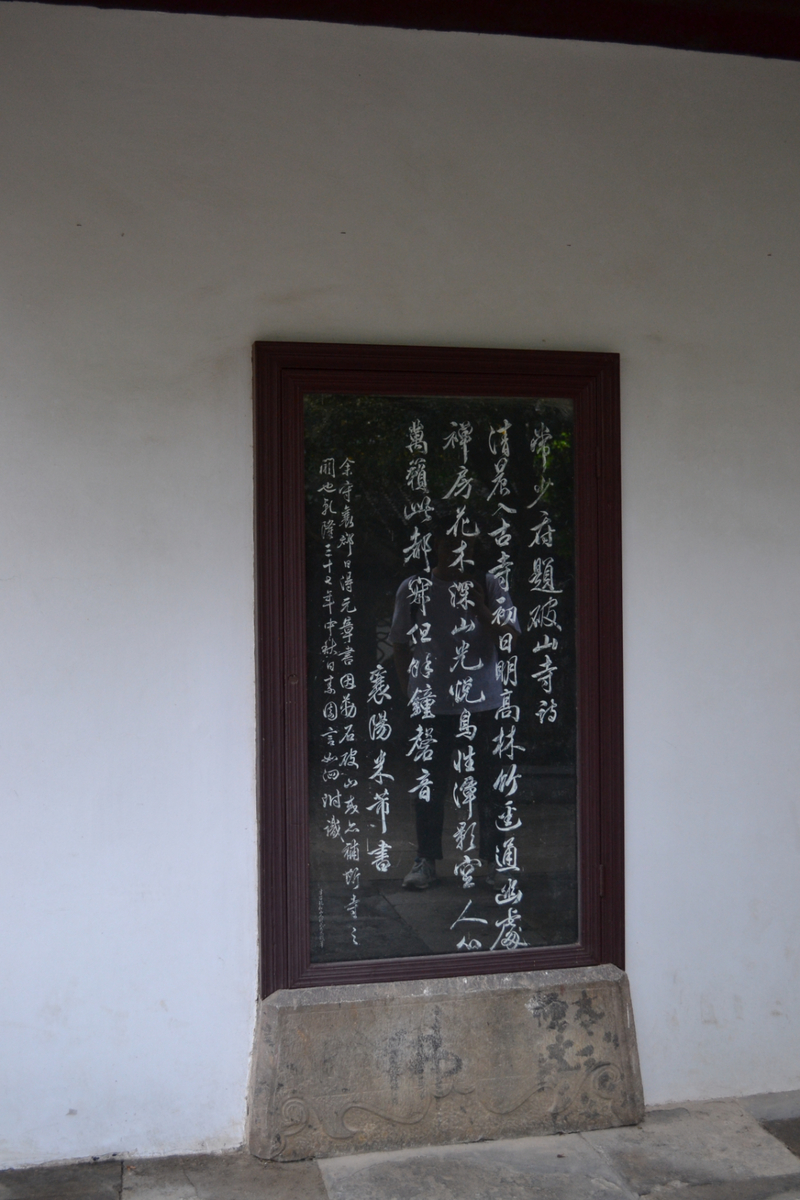 常少府題破山寺詩
清晨入古寺初日明高林竹逕通幽處
禪房花木深山光悅鳥性潭影空人心
萬籟此都寂但餘鐘磬音
襄陽米芾書
余守襄郡日得元章書因勒石破山或亦補斯寺之
闕也乾隆三十七年中秋日素園言如泗附識